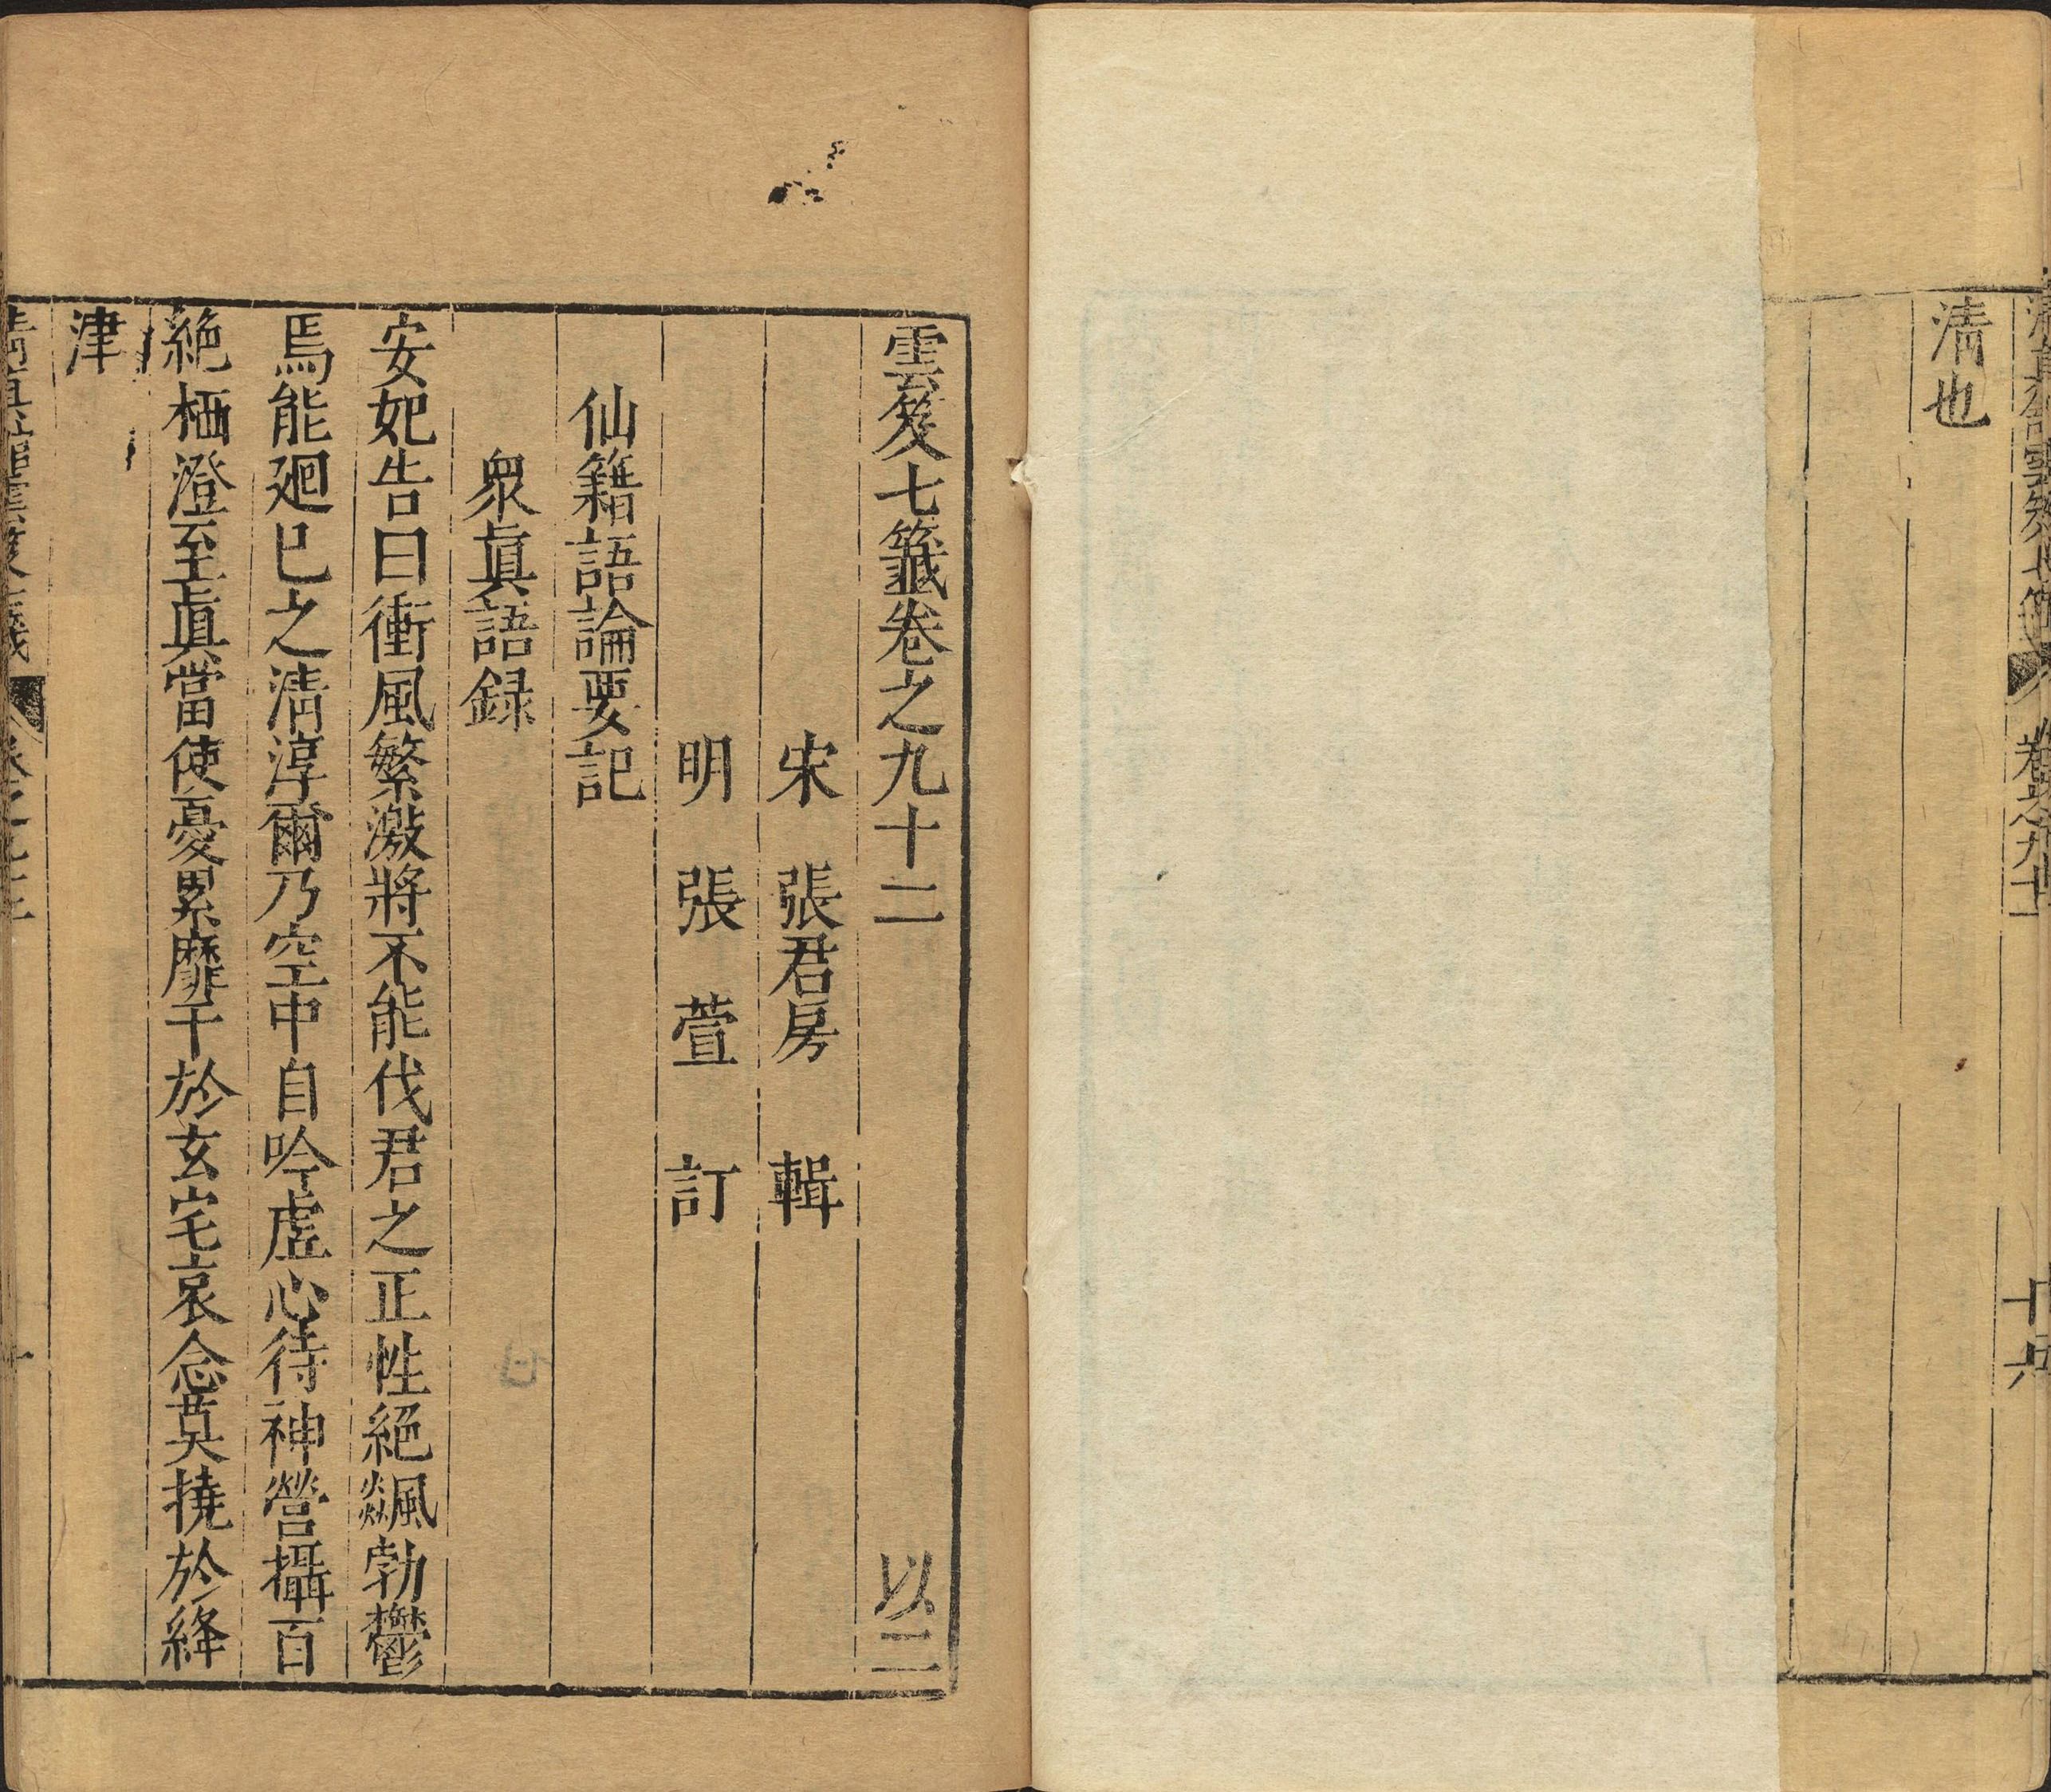 清也
雲笈七籤卷之九十二 以二
宋 張君房 輯
明 張萱 訂
仙籍語論要記
衆眞語録
安妃告曰衝風繁激將不能伐君之正性絕飊勃鬱
焉能廻巳之淸淳爾乃空中自吟虛心待神營攝百
絶栖澄至眞當使憂累靡干於玄宅哀念莫撓於絳
津